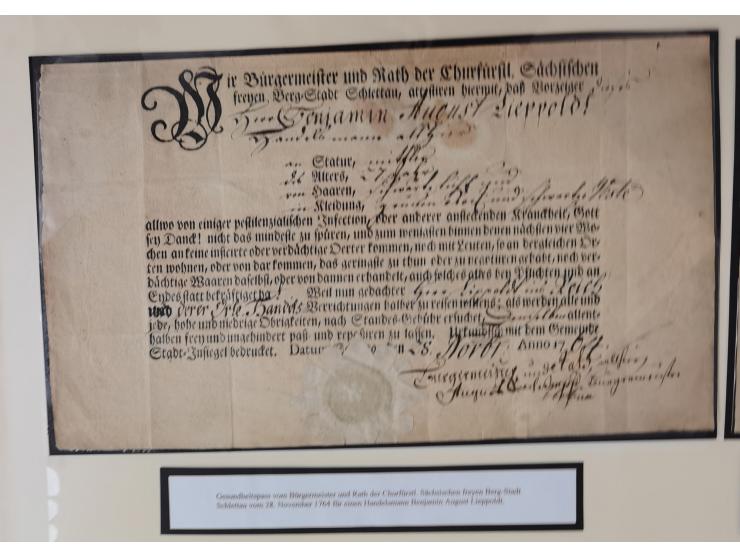 Wir Bürgermeister und Rath der Churfürstl. Sächsischen
freyen Berg-Stadt Schlettau, attestiren hiermit, daß Vorzeiger dieses
Herr Benjamin August Lieppoldt
Handelsmann allhier
an Statur, mittler
des Alters, Jahr
von Haaren, schwartzlicht und
in Kleidung, grünen Rock und schwartze Weste
allwo von einiger pestilenzialischen Infection, oder anderer ansteckenden Kranckheit, Gott
sey Danck! nicht das mindeste zu spüren, und zum wenigsten binnen denen nächsten vier Wo-
chen an keine inficirte oder verdächtige Oerter kommen, noch mit Leuten, so an dergleichen Or-
ten wohnen, oder von dar kommen, das geringste zu thun oder zu negotiiren gehabt, noch ver-
dächtige Waaren daselbst, oder von dannen erhandelt, auch solches alles bey Pflichten und an
Eydes statt bekräfftiget hat Weil nun gedachter Herr Lieppoldt ins Reich
und derer Orte Handels Verrichtungen halber zu reisen willens; als werden alle und
jede, hohe und niedrige Obrigkeiten, nach Standes-Gebühr ersuchet, Denselben allent-
halben frey und ungehindert paß- und repassiren zu lassen. Uhrkundlich mit dem Gemeinde
Stadt-Insiegel bedrucket. Datum den 28. Novbr. Anno 1764.
Bürgermeister und Rath allhier,
August Bürgermeister
Gesundheitspass vom Bürgermeister und Rath der Churfürstl. Sächsischen freyen Berg-Stadt
Schlettau vom 28. November 1764 für einen Handelsmann Benjamin August Lieppoldt.